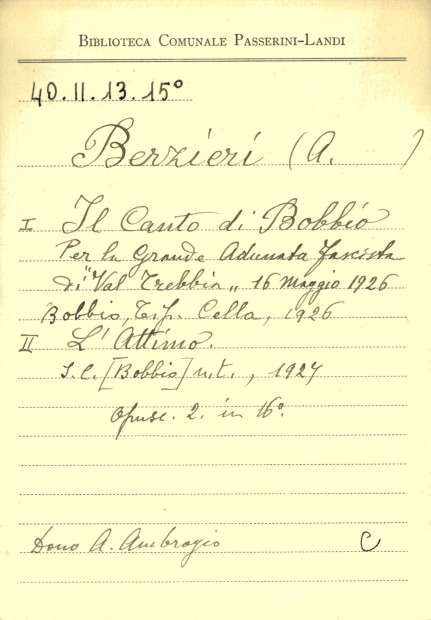 BIBLIOTECA COMUNALE PASSERINI-LANDI
40.II.13.15°
Berzieri (A. )
I Il Canto di Bobbio
Per la Grande Adunata fascista
di "Val Trebbia" 16 Maggio 1926
Bobbio, Tip. Cella, 1926
II L'Attimo.
S.l. [Bobbio] n.t., 1927
Opusc. 2. in 16°.
Dono A. Ambrogio C